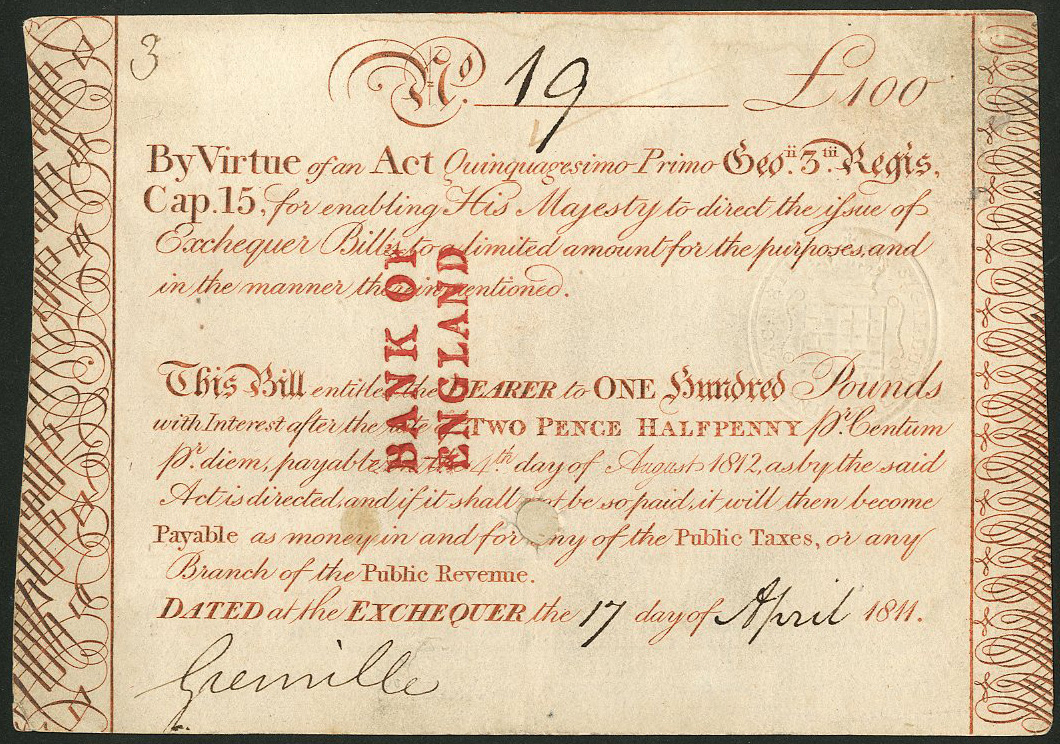 3
No. 19 £100
By Virtue of an Act Quinquagesimo Primo Geo.ii 3.tii Regis,
Cap. 15, for enabling His Majesty to direct the issue of
Exchequer Bills to a limited amount for the purposes, and
in the manner therein mentioned.
BANK OF
ENGLAND
This Bill entitles the BEARER to ONE Hundred Pounds
with Interest after the rate TWO PENCE HALFPENNY pr. Centum
pr. diem, payable the 4th day of August 1812, as by the said
Act is directed, and if it shall not be so paid, it will then become
Payable as money in and for any of the Public Taxes, or any
Branch of the Public Revenue.
DATED at the EXCHEQUER the 17 day of April 1811.
Grenville